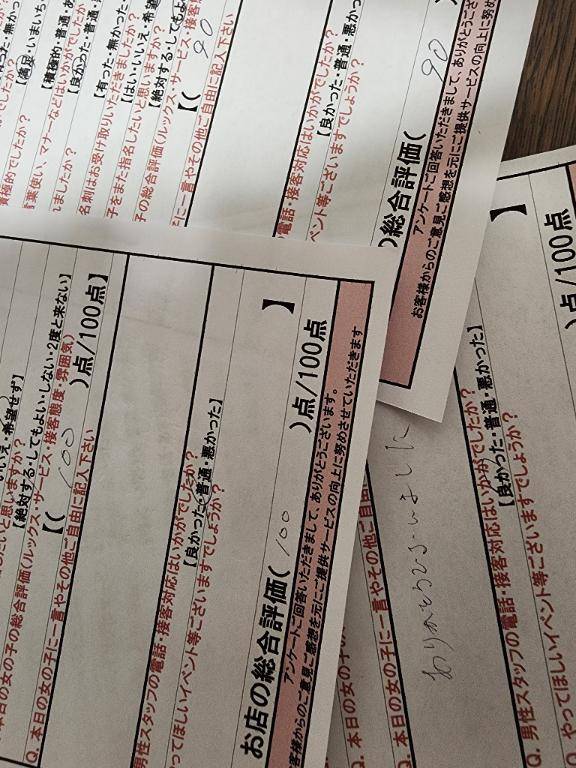 有った・無かった
【満足・いまいち
積極的でしたか？
【積極的・普通・
言葉使い、マナーなどはいかがでしたか？
【良かった・普通・悪かった
しましたか？
【有った・無かった
名刺はお受け取りいただきましたか？
【はい・いいえ・希望
子をまた指名したいと思いますか？
【絶対する・してもよ
子の総合評価（ルックス・サービス・接客
【（ 90
に一言やその他ご自由に記入下さい
電話・接客対応はいかがでしたか？
【良かった・普通・悪かっ
ベント等ございますでしょうか？
の総合評価（ 90 ）
アンケートご回答いただきまして、ありがとうござい
お客様からのご意見ご感想を元にご提供サービスの向上に努め
いいえ・希望せず】
したいと思いますか？
【絶対する・してもよい・しない・2度と来ない】
本日の女の子の総合評価（ルックス・サービス・接客態度・雰囲気）
【（ 100 ）点/100点
Q. 本日の女の子に一言やその他ご自由に記入下さい
】
男性スタッフの電話・接客対応はいかがでしたか？
【良かった・普通・悪かった】
やってほしいイベント等ございますでしょうか？
お店の総合評価（ 100 ）点/100点
アンケートご回答いただきまして、ありがとうございます。
お客様からのご意見ご感想を元にご提供サービスの向上に努めさせていただきます
Q. 本日の女の子に一言やその他ご自由
ありがとうございました
】
Q. 男性スタッフの電話・接客対応はいかがでしたか？
【良かった・普通・悪かった】
Q. やってほしいイベント等ございますでしょうか？
）点/100点